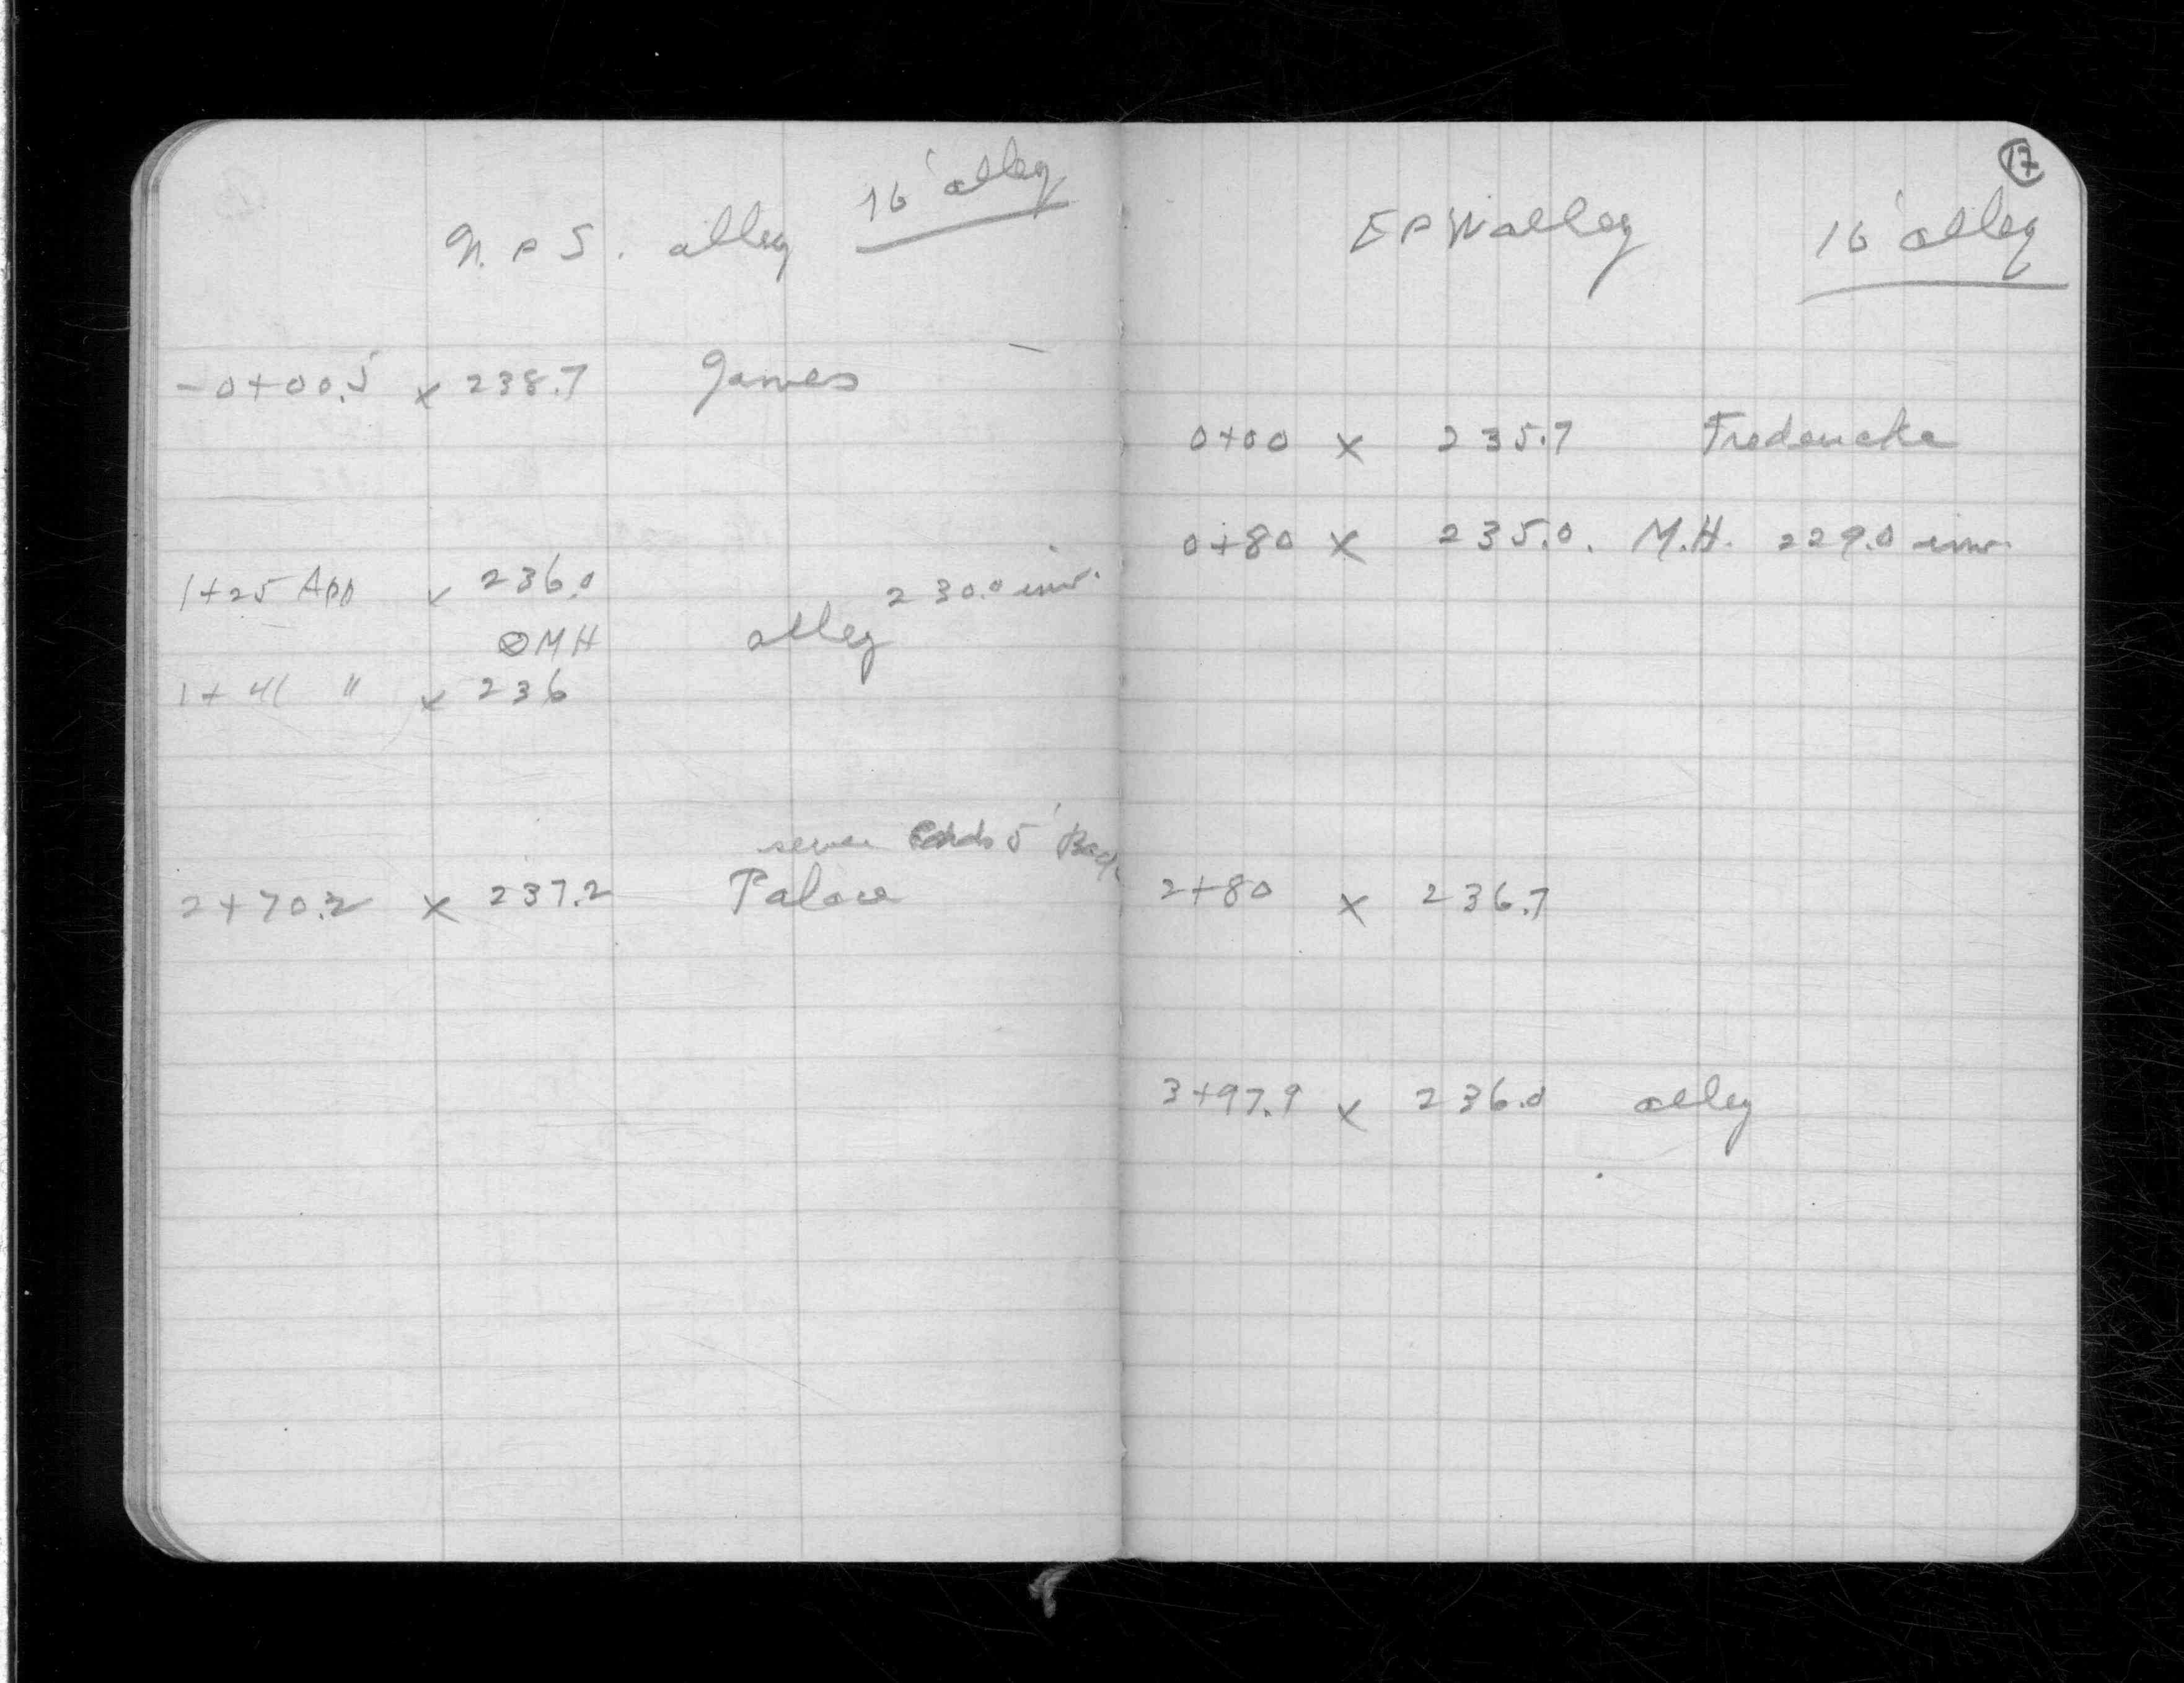 N. & S. alley 16' alley
-0+00.5 x 238.7 James
1+25 App x 236.0 230.0 inv.
MH alley
1+41 " x 236
sewer Ends 5' Back
2+70.2 x 237.2 Palace
17
E & W alley 16' alley
0+00 x 235.7 Fredericka
0+80 x 235.0. M.H. 229.0 inv.
2+80 x 236.7
3+97.9 x 236.0 alley